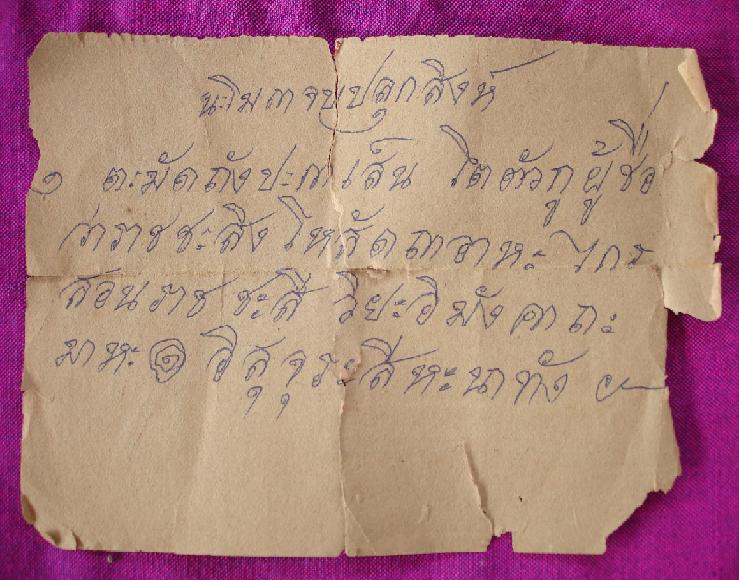 นะโมคาถาปลุกสิงห์
๑ ตะมัตถังปะกาเส็น โตตัวกูผู้ชื่อ
ว่าราชชะสิง โหสัตถาอาหะ ไกร
สอนราช ชะสี วิยะอิมังคาถะ
มาหะ ๑ อิสุจุระสีหะนาทัง ฯ